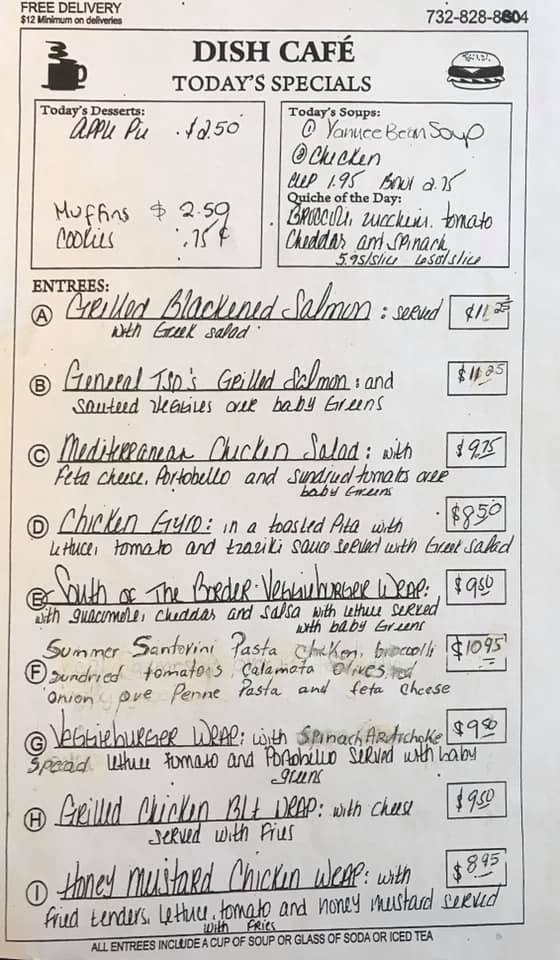 FREE DELIVERY
$12 Minimum on deliveries
732-828-8804
DISH CAFÉ
TODAY'S SPECIALS
Today's Desserts:
Apple Pie . $2.50
Muffins $ 2.50
Cookies .75¢
Today's Soups:
① Yankee Bean Soup
② Chicken
Cup 1.95 Bowl 2.75
Quiche of the Day:
Broccoli, zucchini, tomato
Cheddar and Spinach
5.95/slice 6.50/slice
ENTREES:
A Grilled Blackened Salmon: served $11.25
with Greek salad
B General Tso's Grilled Salmon: and $11.25
sauteed veggies over baby Greens
C Mediterranean Chicken Salad: with $9.75
Feta cheese, Portobello and sundried tomatos over
baby Greens
D Chicken Gyro: in a toasted Pita with $8.50
lettuce, tomato and tzaziki sauce served with Greek salad
E South of The Border Veggieburger Wrap: $9.50
with guacamole, cheddar and salsa with lettuce served
with baby Greens
Summer Santorini Pasta Chicken, broccolli $10.95
F Sundried tomatoes, Calamata Olives, red
onion ove Penne Pasta and feta cheese
G Veggieburger Wrap: with Spinach Artichoke
Spead lettuce tomato and Portobello served with baby
greens
H Grilled Chicken Blt Wrap: with cheese $9.50
served with Fries
I Honey Mustard Chicken Wrap: with $8.95
fried tenders, lettuce, tomato and honey mustard served
with fries
ALL ENTREES INCLUDE A CUP OF SOUP OR GLASS OF SODA OR ICED TEA